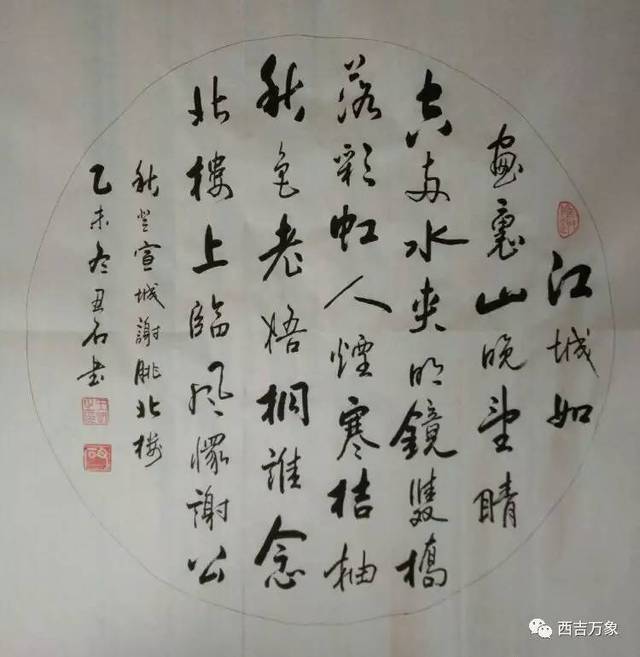 江城如
畫裏山晚望晴
空兩水夾明鏡雙橋
落彩虹人煙寒桔柚
秋色老梧桐誰念
北樓上臨風懷謝公
秋登宣城謝朓北楼
乙未冬丑石書
西吉万象